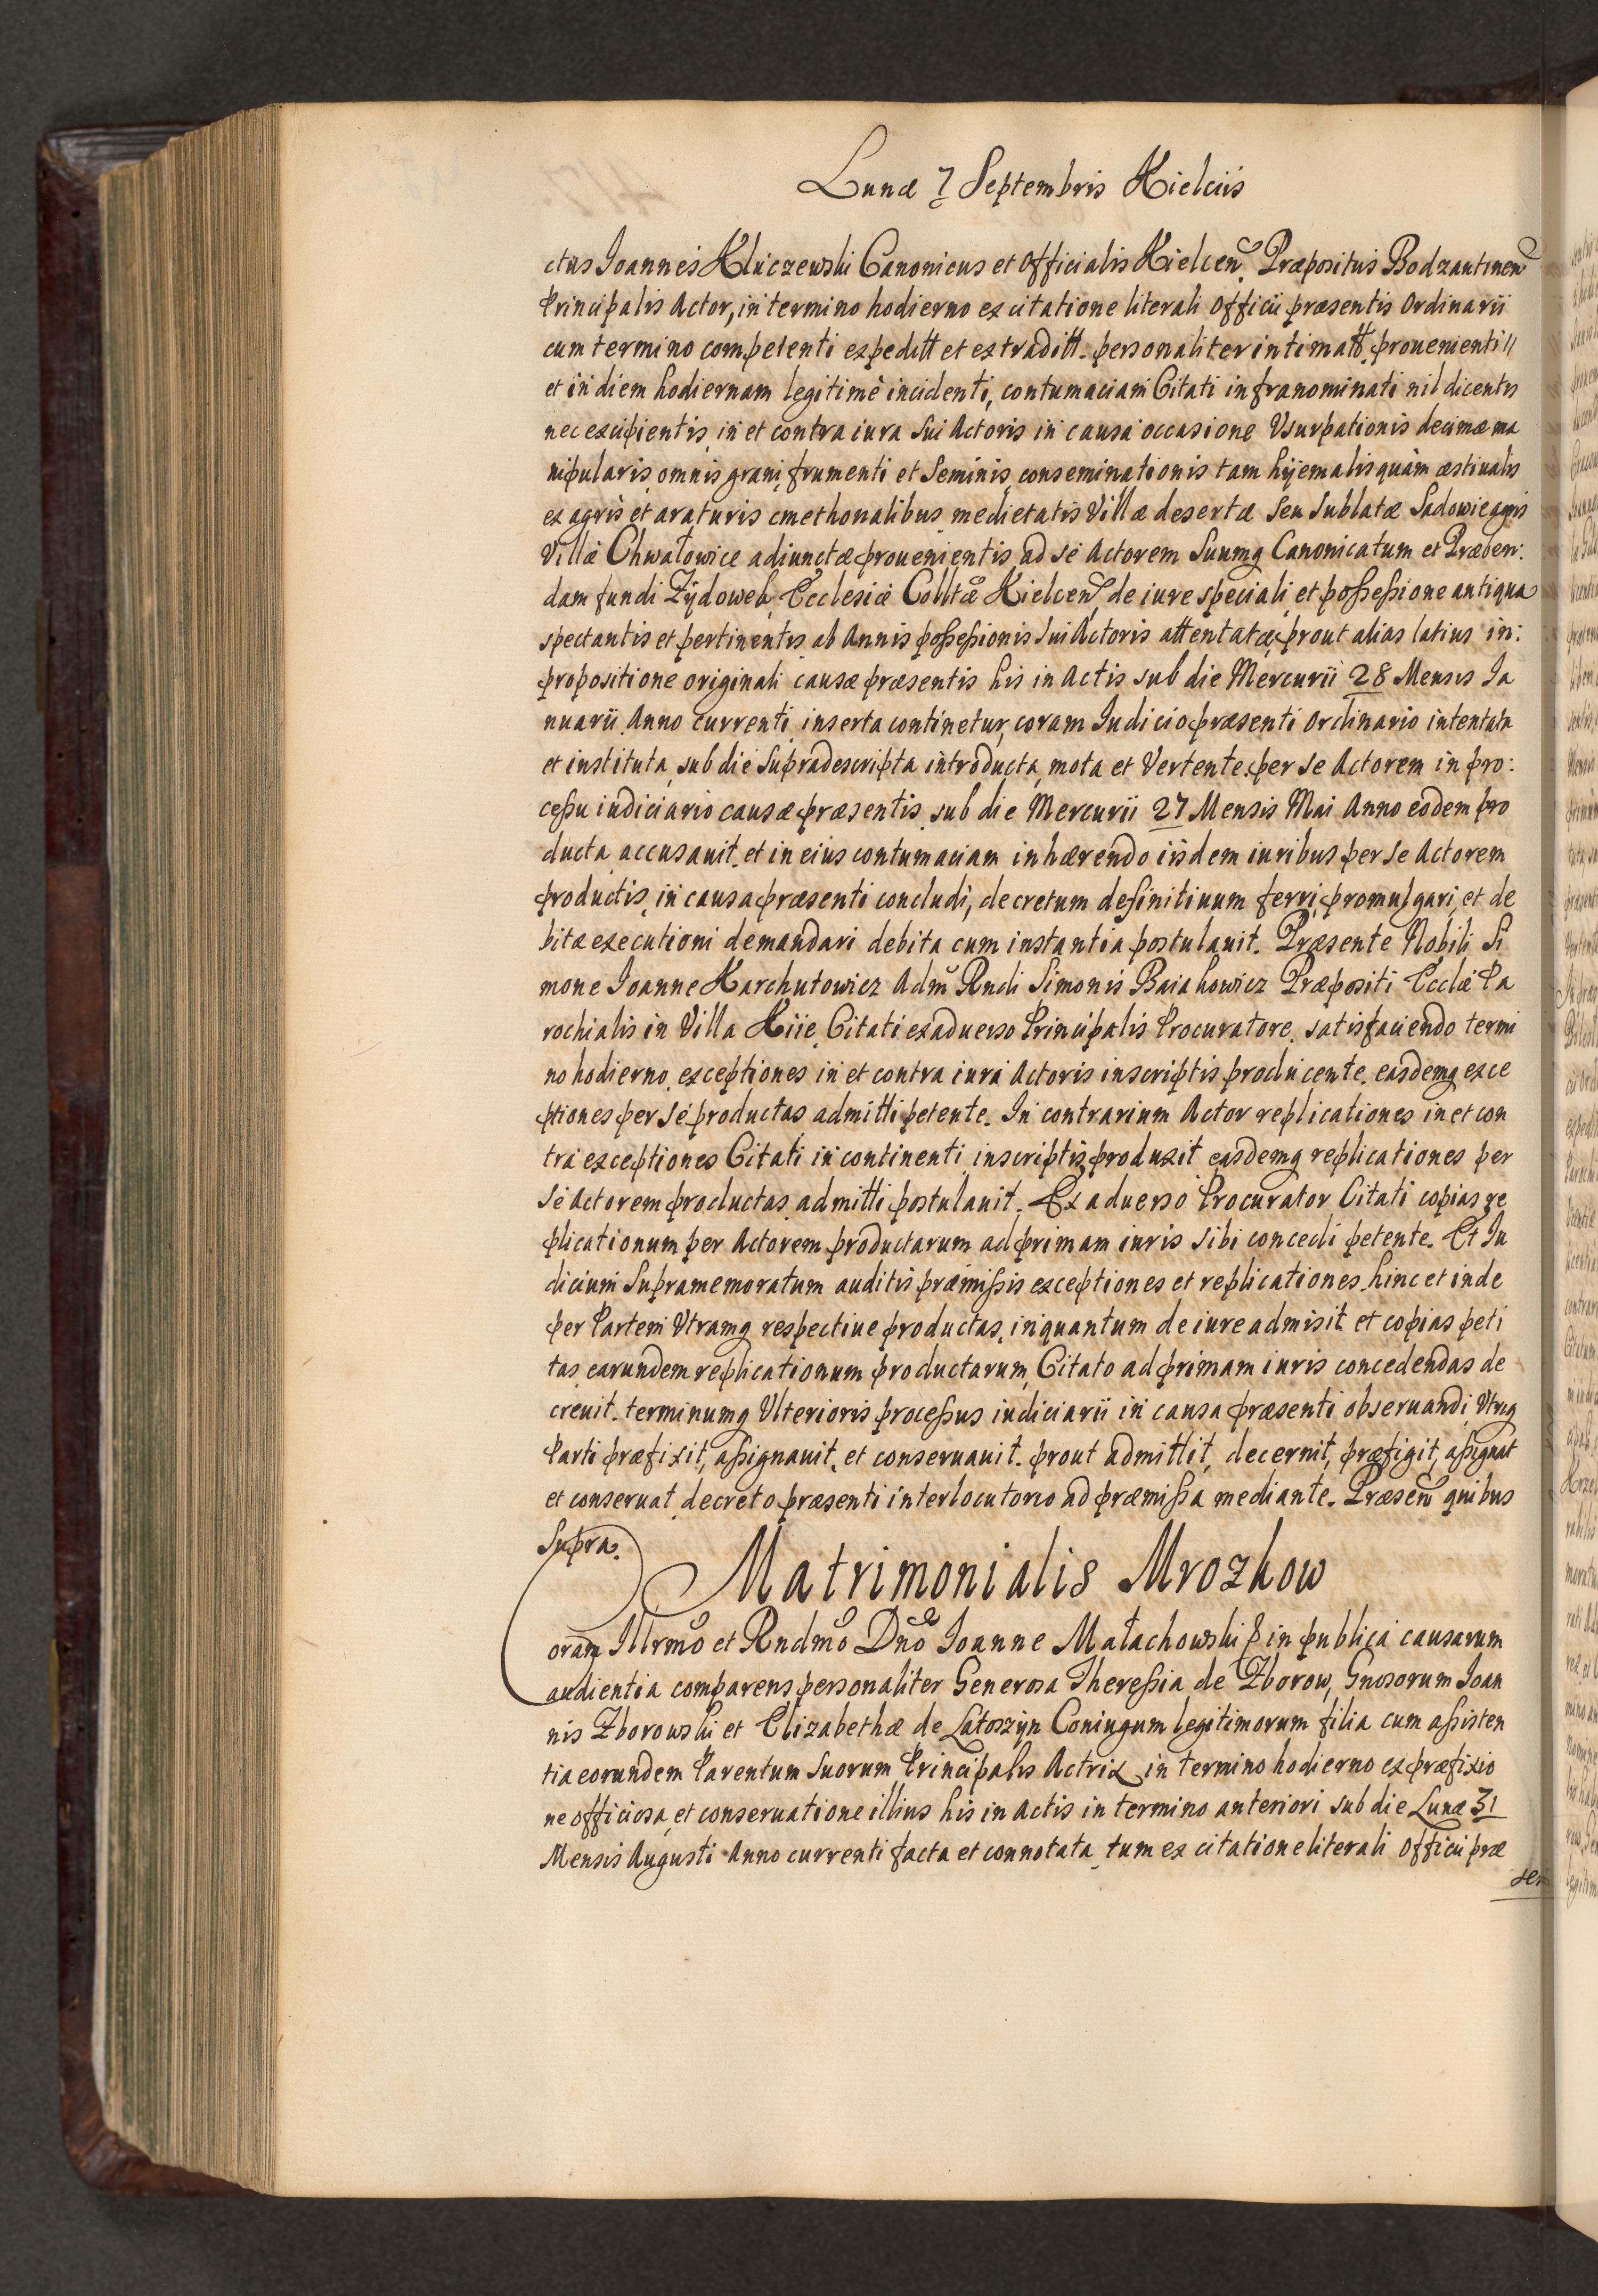 Lunæ 7 Septembris Kielciis
ctus Ioannes Kluczewski Canonicus et Officialis Kielceñ Præpositus Bodzantineñ
Principalis Actor, in termino hodierno ex citatione literali Officii præsentis Ordinarii
cum termino competenti expeditt et extraditt. personaliter intimatt. prouenienti
et in diem hodiernam legitimè incidenti, contumaciam Citati infranominati nil dicentis
nec excipientis in et contra iura Sui Actoris in causa occasione Vsurpationis decimæ ma
nipularis omnis grani frumenti et Seminis conseminationis tam hÿemalis quàm æstiualis
ex agris et araturis cmethonalibus medietatis Villæ desertæ Seu Sublatæ Sadowie agris
Villæ Chwałowice adiunctæ prouenientis ad se Actorem Suumq Canonicatum et Præben:
dam fundi Zÿdowek Ecclesiæ Colltæ Kielceñ de iure speciali et possessione antiqua
spectantis et pertinentis ab Annis possessionis Sui Actoris attentatæ prout alias latius in:
propositione originali causæ præsentis his in Actis sub die Mercurii 28 Mensis Ia
nuarii Anno currenti inserta continetur, coram Iudicio præsenti Ordinario intentata
et instituta, sub die Supradescripta introducta mota et Vertente. per se Actorem in pro:
cessu iudiciario causæ præsentis sub die Mercurii 27 Mensis Mai Anno eodem pro
ducta accusauit. et in eius contumaciam inhærendo iisdem iuribus per se Actorem
productis in causa præsenti concludi, decretum definitiuum ferri, promulgari, et de
bitæ executioni demandari debita cum instantia postulauit. Præsente Nobili Si
mone Ioanne Karchutowicz Adm̃ Rndi Simonis Baiakowicz Præpositi Ecclæ Pa
rochialis in Villa Kiie Citati exaduerso Principalis Procuratore. satisfaciendo termi
no hodierno exceptiones in et contra iura Actoris inscriptis producente. easdemq exce
ptiones per se productas admitti petente. In contrarium Actor replicationes in et con
tra exceptiones Citati in continenti inscriptis produxit easdemq replicationes per
se Actorem productas admitti postulauit. Ex aduerso Procurator Citati copias re
plicationum per Actorem productarum ad primam iuris Sibi concedi petente. Et Iu
dicium Supramemoratum auditis præmissis exceptiones et replicationes hinc et inde
per Partem Vtramq respectiue productas, inquantum de iure admisit et copias peti
tas earundem replicationum productarum Citato ad primam iuris concedendas de
creuit. terminumq Vlterioris processus iudiciarii in causa præsenti obseruandi Vtriq
Parti præfixit, assignauit, et conseruauit. prout admittit, decernit, præfigit, assignat
et conseruat decreto præsenti interlocutorio ad præmissa mediante. Præseñ quibus
Supra.
Matrimonialis Mrozkow
Coram Illrmo et Rndmo Dno Ioanne Małachowski in publica causarum
audientia comparens personaliter Generosa Theressia de Zborow, Gnosorum Ioan
nis Zborowski et Elizabethæ de Latoszÿn Coniugum legitimorum filia cum assisten
tia eorundem Parentum Suorum Principalis Actrix in termino hodierno ex præfixio
ne officiosa et conseruatione illius his in Actis in termino anteriori sub die Lunæ 31
Mensis Augusti Anno currenti facta et connotata tum ex citatione literali Officii præ
sen